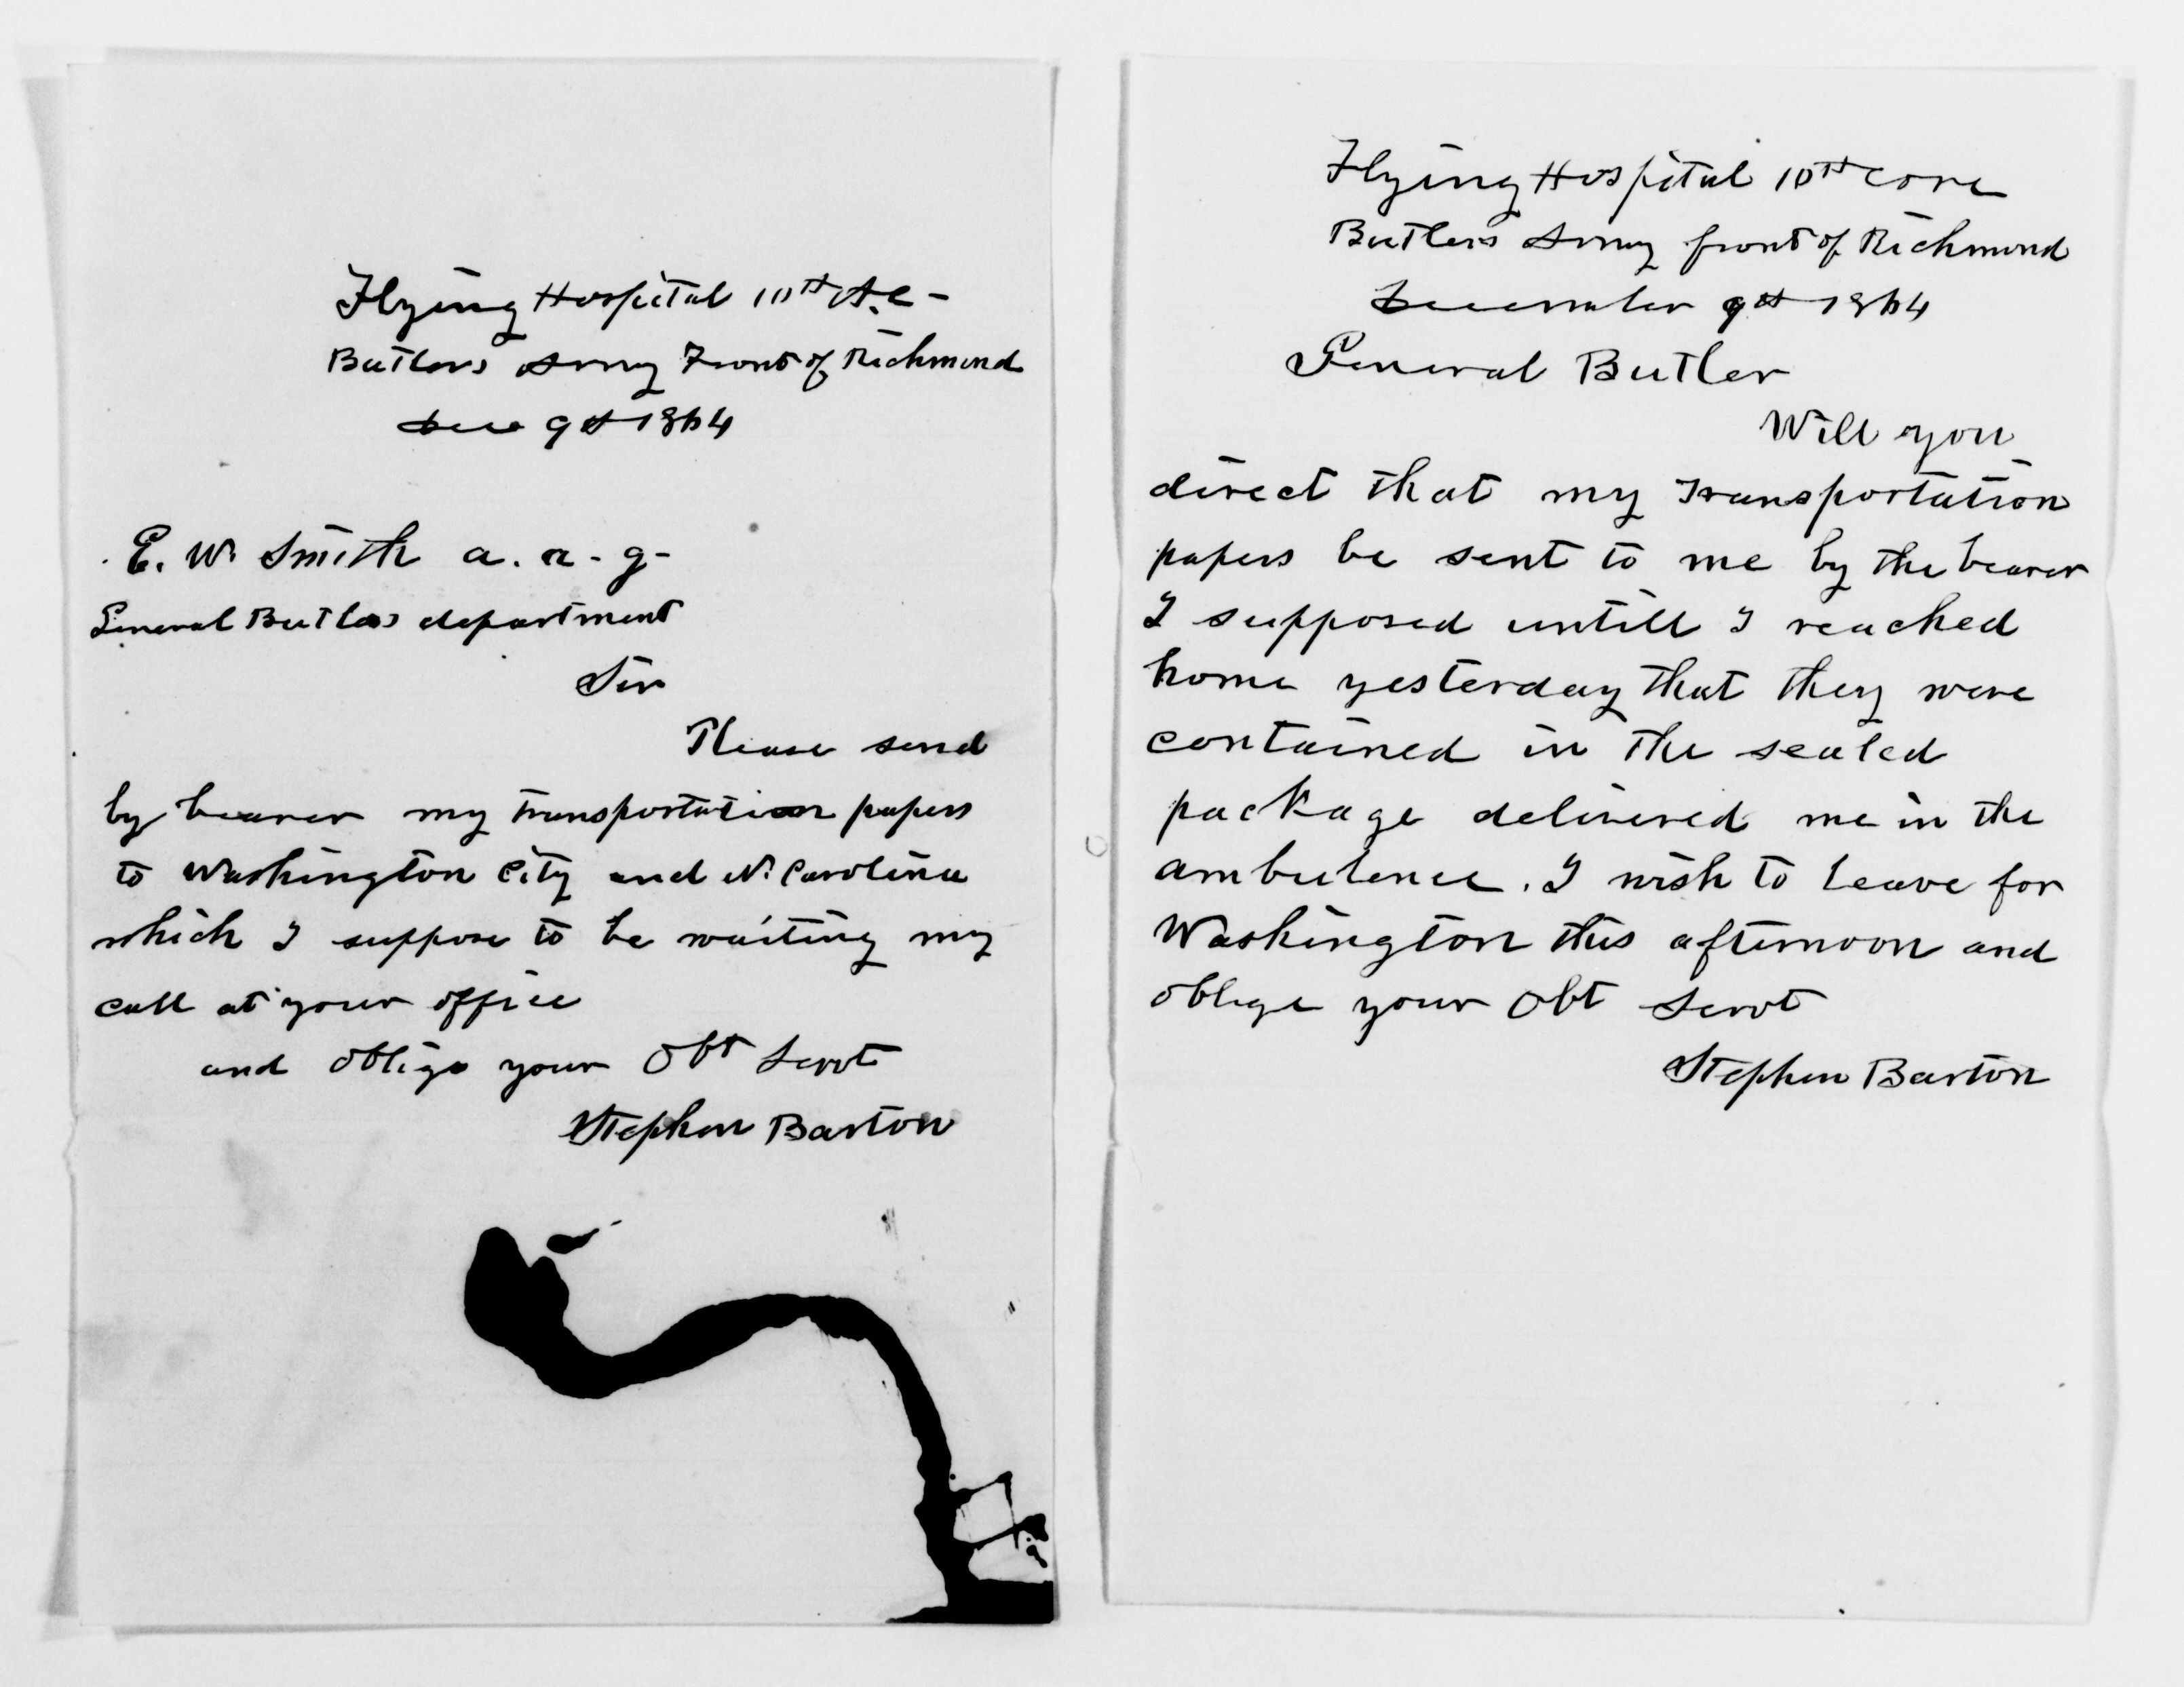 Flying Hospital 10th A.C-
Butlers Army Front of Richmond
Dec 9th 1864
E. W. Smith a. a - g -
General Butlers department
Sir
Please send
by bearer my transportation papers
to Washington City and N. Carolina
which I suppose to be waiting my
call at your office
and oblige your Obt Servt
Stephen Barton
Flying Hospital 10th Core
Butlers Army front of Richmond
December 9th 1864
General Butler
Will you
direct that my Transportation
papers be sent to me by the bearer
I supposed untill I reached
home yesterday that they were
contained in the sealed
package delivered me in the
ambulence. I wish to leave for
Washington this afternoon and
oblige your Obt Servt
Stephen Barton